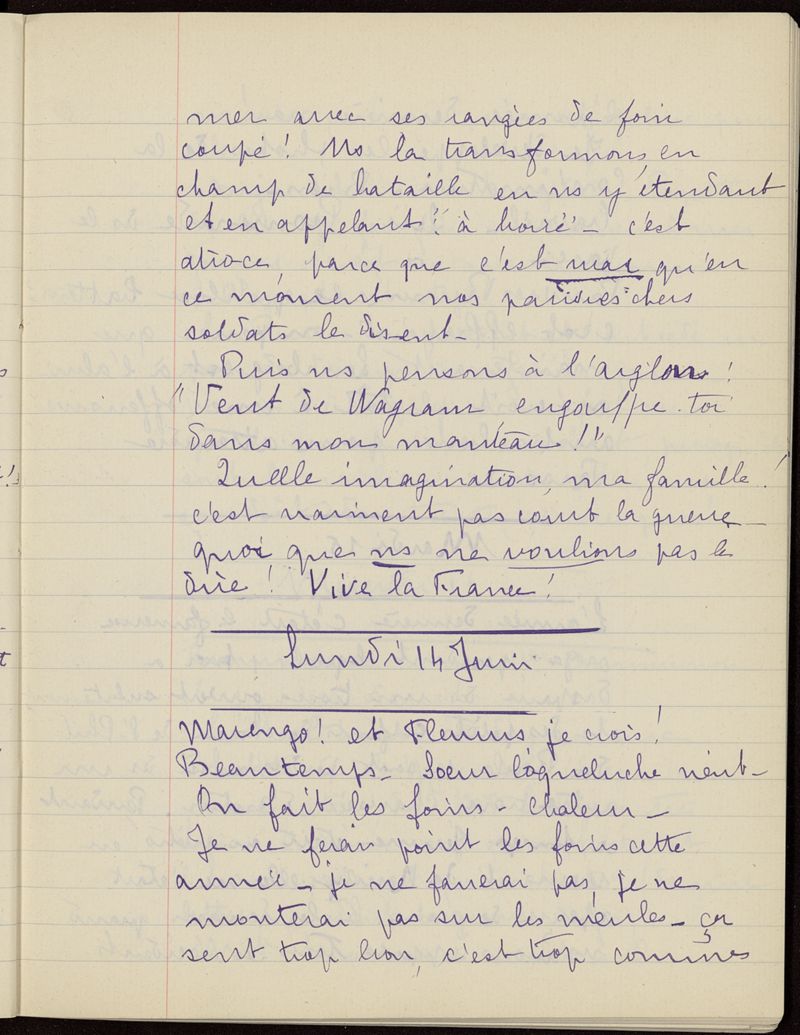 mer avec ses rangées de foin
coupé! Ns la transformons en
champ de bataille en ns y étendant
et en appelant: "à boire" - c'est
atroce, parce que c'est vrai qu'en
ce moment nos pauvres chers
soldats le disent -
Puis ns pensons à l'aiglon!
"Vent de Wagram engouffre-toi
dans mon manteau!!"
Quelle imagination, ma famille!
c'est vraiment pas court la guerre -
quoi que ns ne voulions pas le
dire! Vive la France!
Lundi 14 Juin
Marengo! et Fleurus je crois!
Beau temps - Soeur vient -
On fait les foins - chaleur -
Je ne ferai point les foins cette
année - je ne fanerai pas, je ne
monterai pas sur les meules - ça
sent trop bon, c'est trop commes